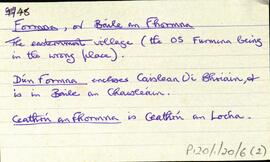 9748
Formna, or Baile an Fhormna
The easternmost village (the OS Furmina being
in the wrong place).
Dún Formna encloses Caislean Uí Bhriain, &
is in Baile an Chaisleáin.
Ceathrú an Fhormna is Ceathrú an Locha.
P120/1/20/6 (2)